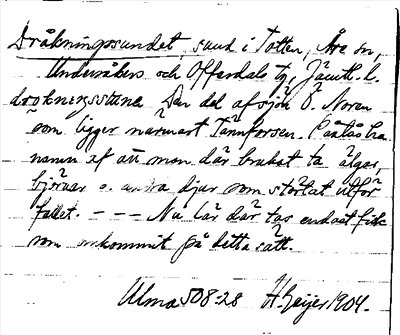 Dråkningssundet, sund i Totten, Åre sn,
Undersåkers och Offerdals tg, Jämtl. l.
drǫkneŋssṵnə Den del af sjön Ö. Noren
som ligger närmast Tännforsen. Påstås ha
namn af att man där brukat ta älgar,
björnar o. andra djur som störtat utför
fallet. - - - Nu lär där tas endast fisk
som omkommit på detta sätt.
Ulma 508:28 H. Geijer 1904.